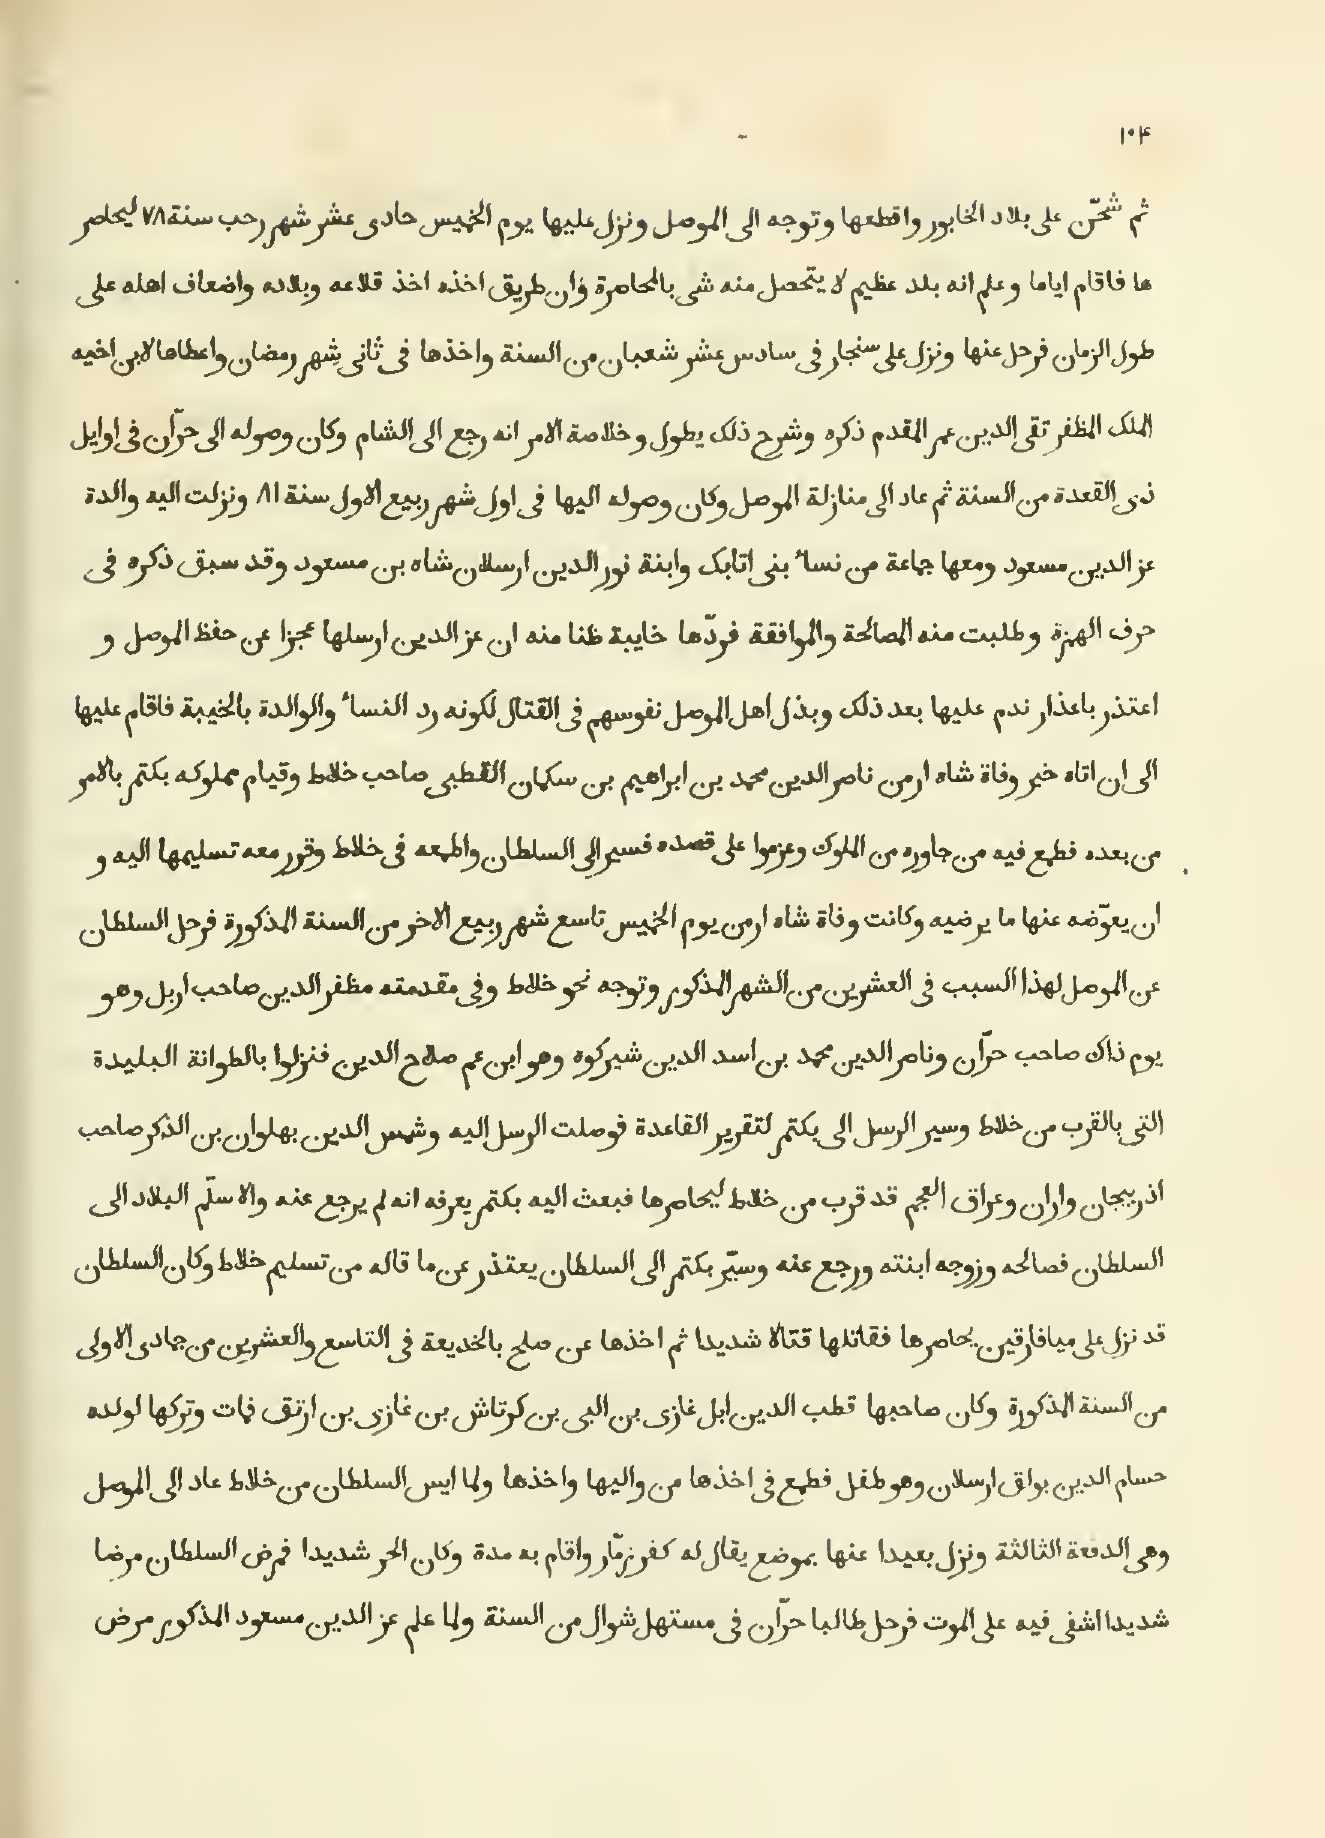 ١٠۴
ثم شحّن على بلاد الخابور واقطعها وتوجه الى الموصل ونزل عليها يوم الخميس حادى عشر شهر رحب سنة ٧٨ ليحاصر
ها فاقام اياما وعلم انه بلد عظيم لا يتحصل منه شى بالمحاصرة وان طريق اخذه اخذ قلاعه وبلاده واضعاف اهله على
طول الزمان فرحل عنها ونزل على سنجار فى سادس عشر شعبان من السنة واخذها فى ثانى شهر رمضان واعطاها لابن اخيه
الملك المظفر تقى الدين عمر المقدم ذكره وشرح ذلك يطول وخلاصة الامر انه رجع الى الشام وكان وصوله الى حرّان فى اوايل
ذى القعدة من السنة ثم عاد الى منازلة الموصل وكان وصوله اليها فى اول شهر ربيع الاول سنة ٨١ ونزلت اليه والدة
عز الدين مسعود ومعها جماعة من نساء بنى اتابك وابنة نور الدين ارسلان شاه بن مسعود وقد سبق ذكره فى
حرف الهمزة وطلبت منه المصالحة والموافقة فردّها خايبة ظنا منه ان عز الدين ارسلها عجزا عن حفظ الموصل و
اعتذر باعذار ندم عليها بعد ذلك وبذل اهل الموصل نفوسهم فى القتال لكونه رد النساء والوالدة بالخيبة فاقام عليها
الى ان اتاه خبر وفاة شاه ارمن ناصر الدين محمد بن ابراهيم بن سكمان القطبى صاحب خلاط وقيام مملوكه بكتمر بالامر
من بعده فطمع فيه من جاوره من الملوك وعزموا على قصده فسير الى السلطان واطمعه فى خلاط وقرر معه تسليمها اليه و
ان يعوّضه عنها ما يرضيه وكانت وفاة شاه ارمن يوم الخميس تاسع شهر ربيع الاخر من السنة المذكورة فرحل السلطان
عن الموصل لهذا السبب فى العشرين من الشهر المذكور وتوجه نحو خلاط وفى مقدمته مظفر الدين صاحب اربل وهو
يوم ذاك صاحب حرّان وناصر الدين محمد بن اسد الدين شيركوه وهو ابن عم صلاح الدين فنزلوا بالطوانة البليدة
التى بالقرب من خلاط وسير الرسل الى بكتمر لتقرير القاعدة فوصلت الرسل اليه وشمس الدين بهلوان بن الذكر صاحب
اذربيجان واران وعراق العجم قد قرب من خلاط ليحاصرها فبعث اليه بكتمر يعرفه انه لم يرجع عنه والا سلّم البلاد الى
السلطان فصالحه وزوجه ابنته ورجع عنه وسيّر بكتمر الى السلطان يعتذر عن ما قاله من تسليم خلاط وكان السلطان
قد نزل على ميافارقين يحاصرها فقاتلها قتالا شديدا ثم اخذها عن صلح بالخديعة فى التاسع والعشرين من جمادى الاولى
من السنة المذكورة وكان صاحبها قطب الدين ابل غازى بن البى بن كرتاش بن غازى بن ارتق فمات وتركها لولده
حسام الدين بواق ارسلان وهو طفل فطمع فى اخذها من واليها واخذها ولما ايس السلطان من خلاط عاد الى الموصل
وهى الدفعة الثالثة ونزل بعيدا عنها بموضع يقال له كفر زمّار واقام به مدة وكان الحر شديدا فمرض السلطان مرضا
شديدا اشفى فيه على الموت فرحل طالبا حرّان فى مستهل شوال من السنة ولما علم عز الدين مسعود المذكور مرض